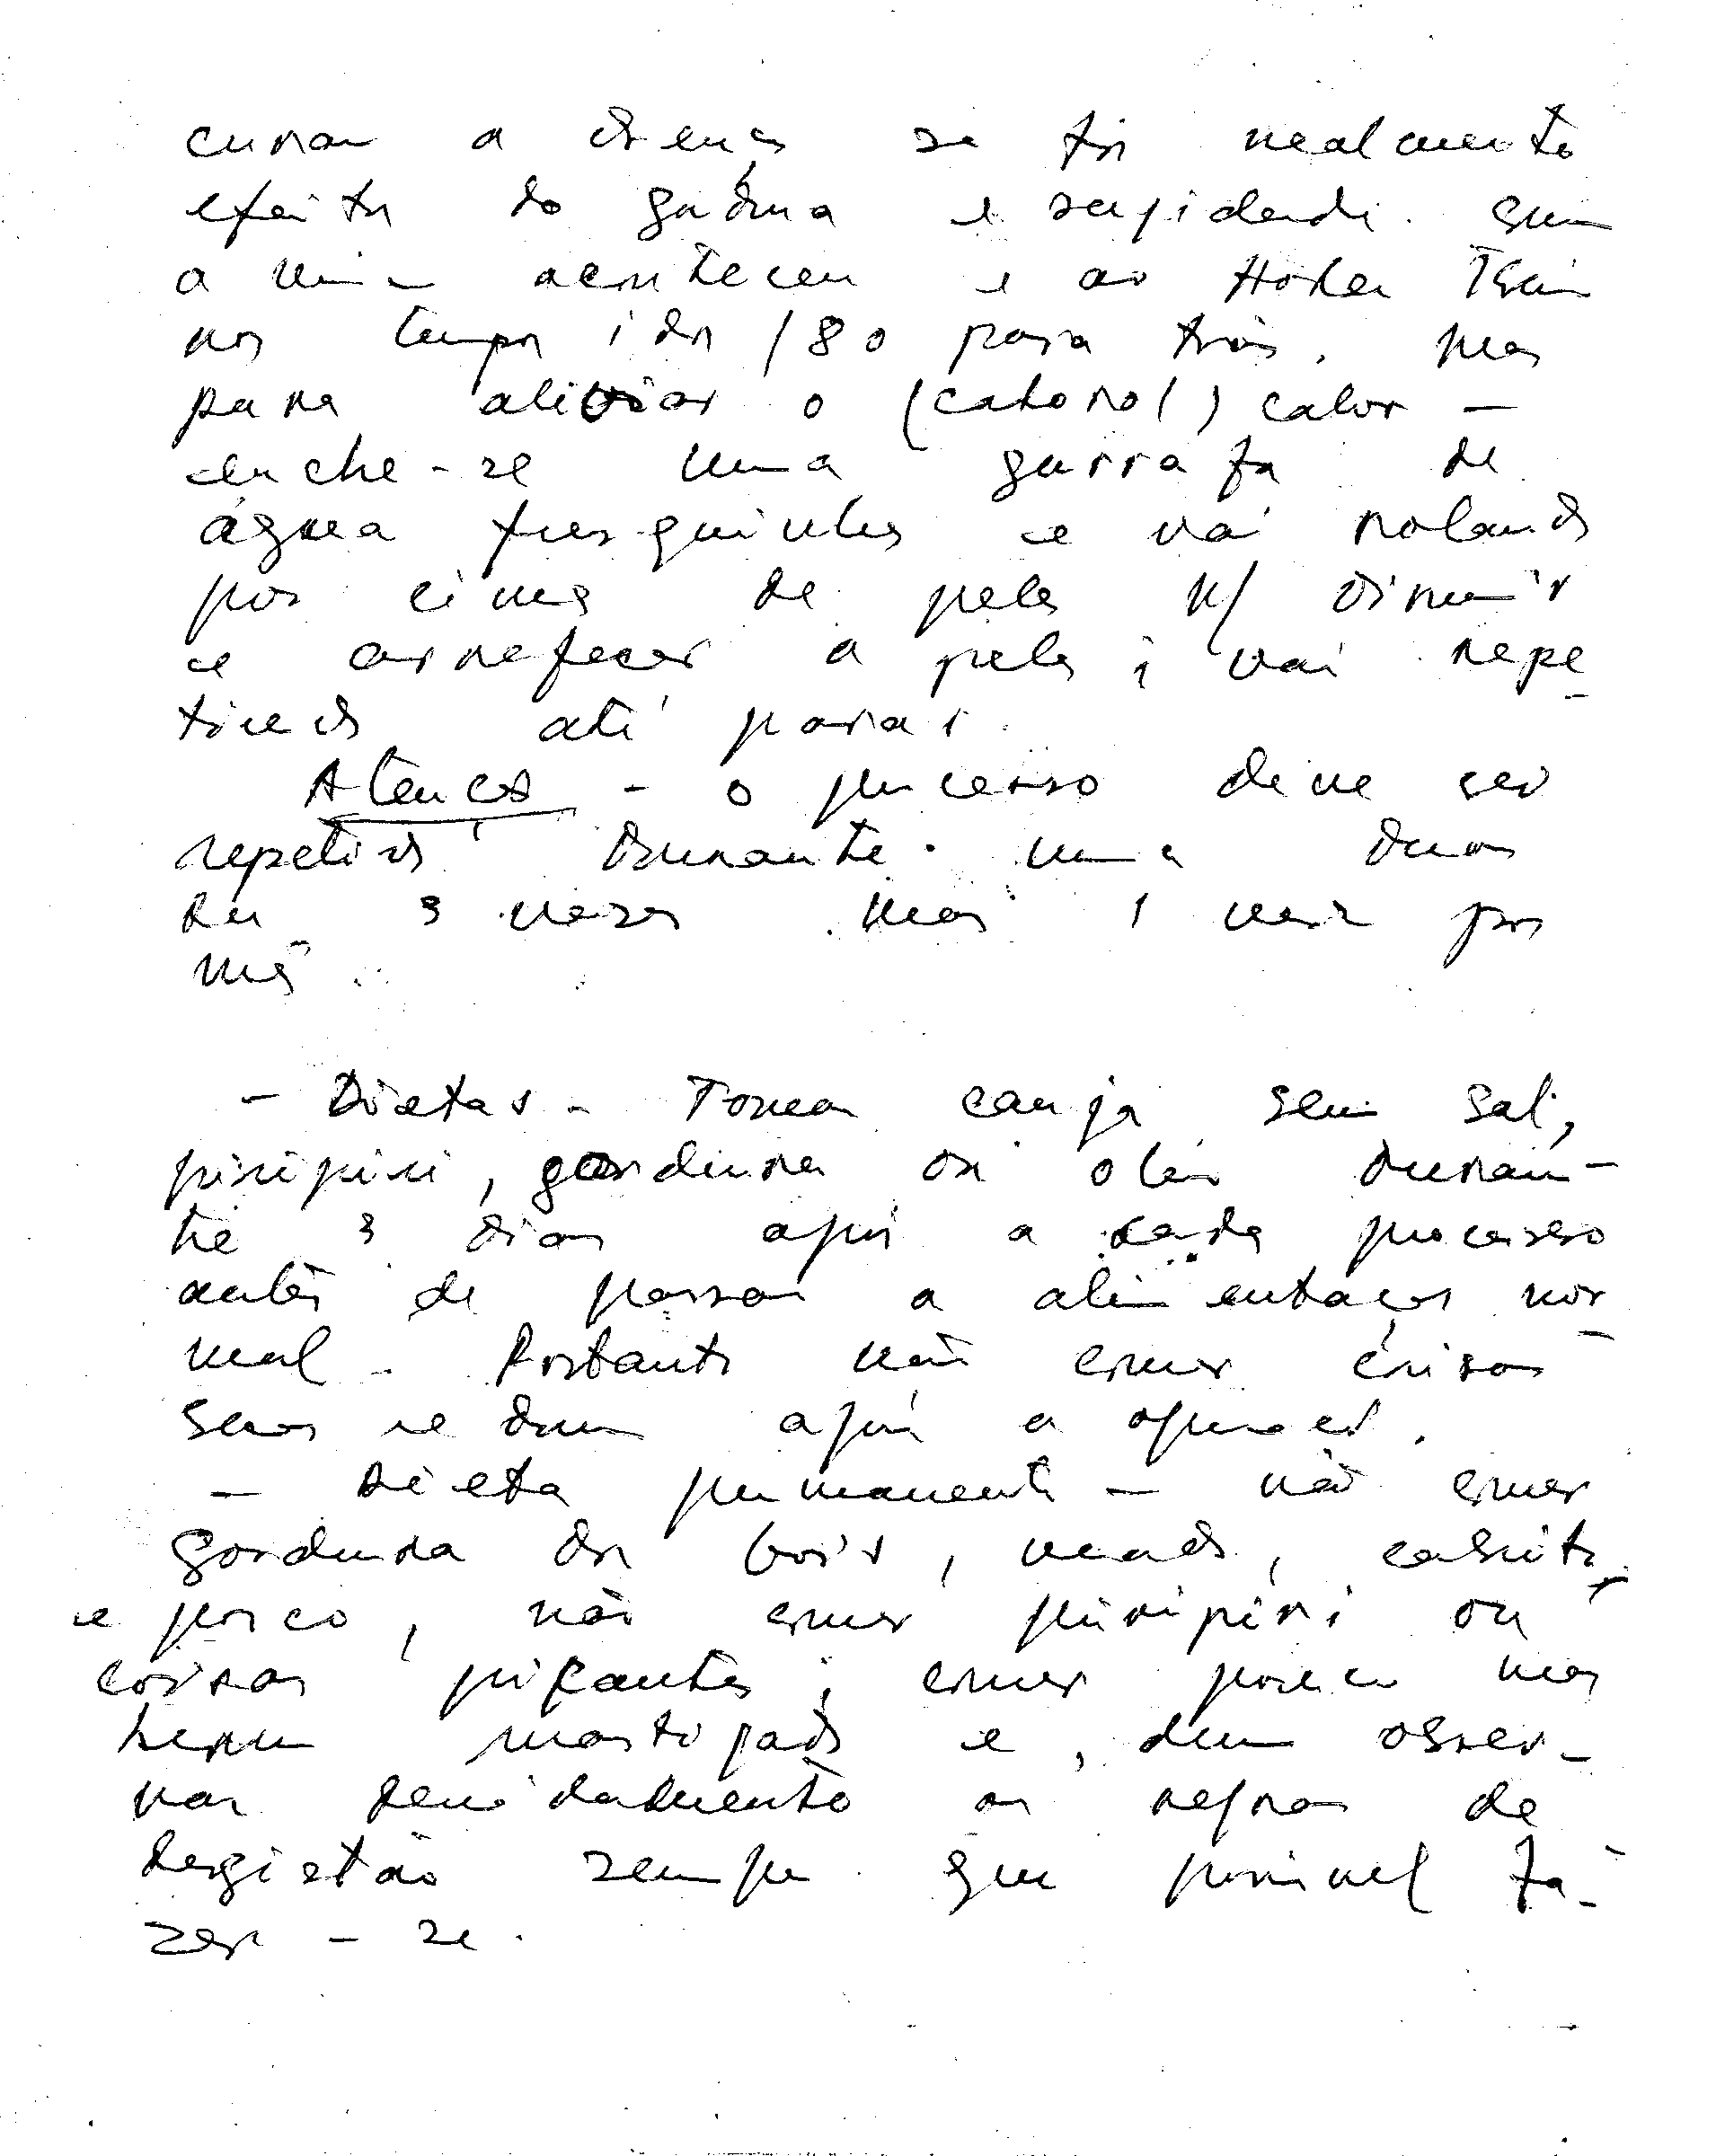 curar a doença se for realmente
efeito do gordura e
a mim aconteceu e ao
nos tempos idos /80 para trás. Mas
para aliviar o (catorol) calor —
enche-se uma garrafa de
água fresquinha e vai rolando
por cima de pele p/ diminuir
e arrefecer a pele; vai repe-
tindo até parar.
Atenção - o processo deve ser
repetido durante uma duas
ou 3 vezes mas 1 vez por
mês.
- Dietas - Tomar canja sem sal,
piripiri, gordura ou óleo duran-
te 3 dias após a cada processo
antes de passar a alimentação nor-
mal - Portanto não comer coisas
secas e duras após a operação.
— Dieta permanente — não comer
gordura dos bois, veado, cabrito
e porco, não comer piripiri ou
coisas picantes; comer pouco mas
bem mastigado e, deve obser-
var devidamente as regras de
degistão sempre que possível fa-
zer-se.